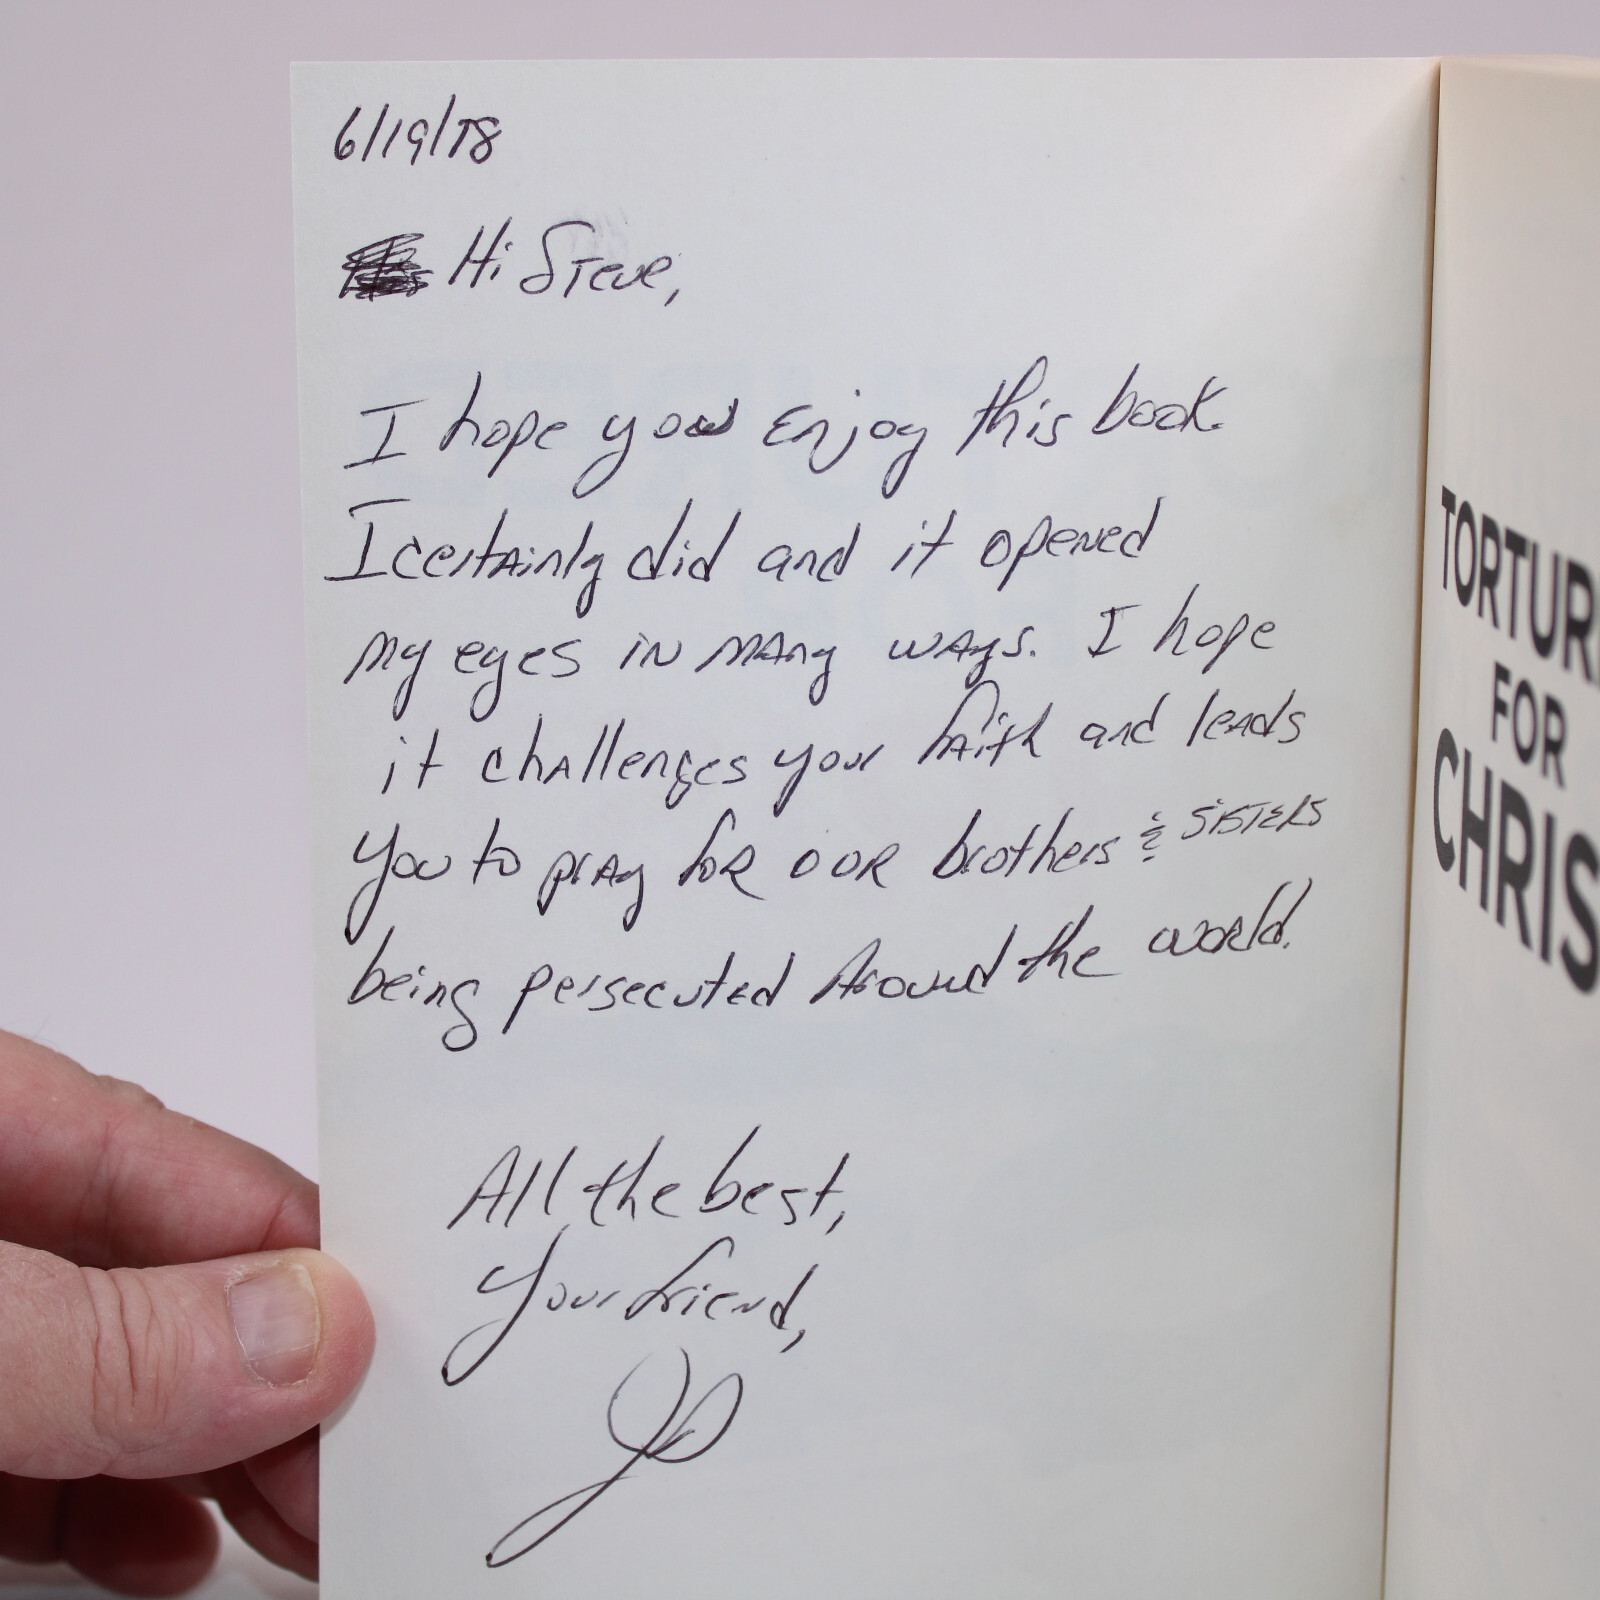 6/19/18
Hi Steve,
I hope you enjoy this book.
I certainly did and it opened
my eyes in many ways. I hope
it challenges your faith and leads
you to pray for our brothers & sisters
being persecuted around the world.
All the best,
Your friend,
TORTUR
FOR
CHRIS